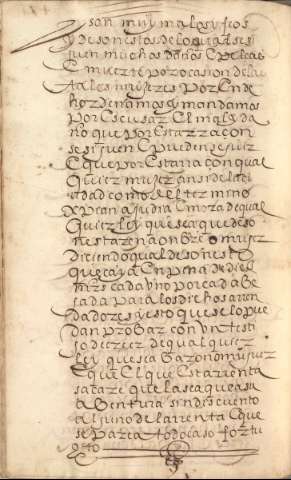 son muy malas y feos
y desonestos de lo qual se si
guen muchos daños e peleas
e muertes por ocasion de las
tales mujeres por ende
hordenamos y mandamos
por escusar el mal y da
ño que por esta rrazon
se siguen e pueden seguir
e que por esta rrazon qual
quier mujer ansi de la ci
dad como de el termino
xpcana judia e mora de qual
quier ley que sea que deso
nestare a honbre o mujer
diciendo qual desonesto
que caya en pena de diez
mrs cada uno por cada be
zada para los dichos arren
dadores y esto que se lo pue
dan probar con un testi
go de creer de qual quier
ley que sea baron o mujer
e que el que esta rrenta
sacare que la saque a su
abentura sin descuento
alguno de la rrenta e que
se parta todo caso fortu
yto